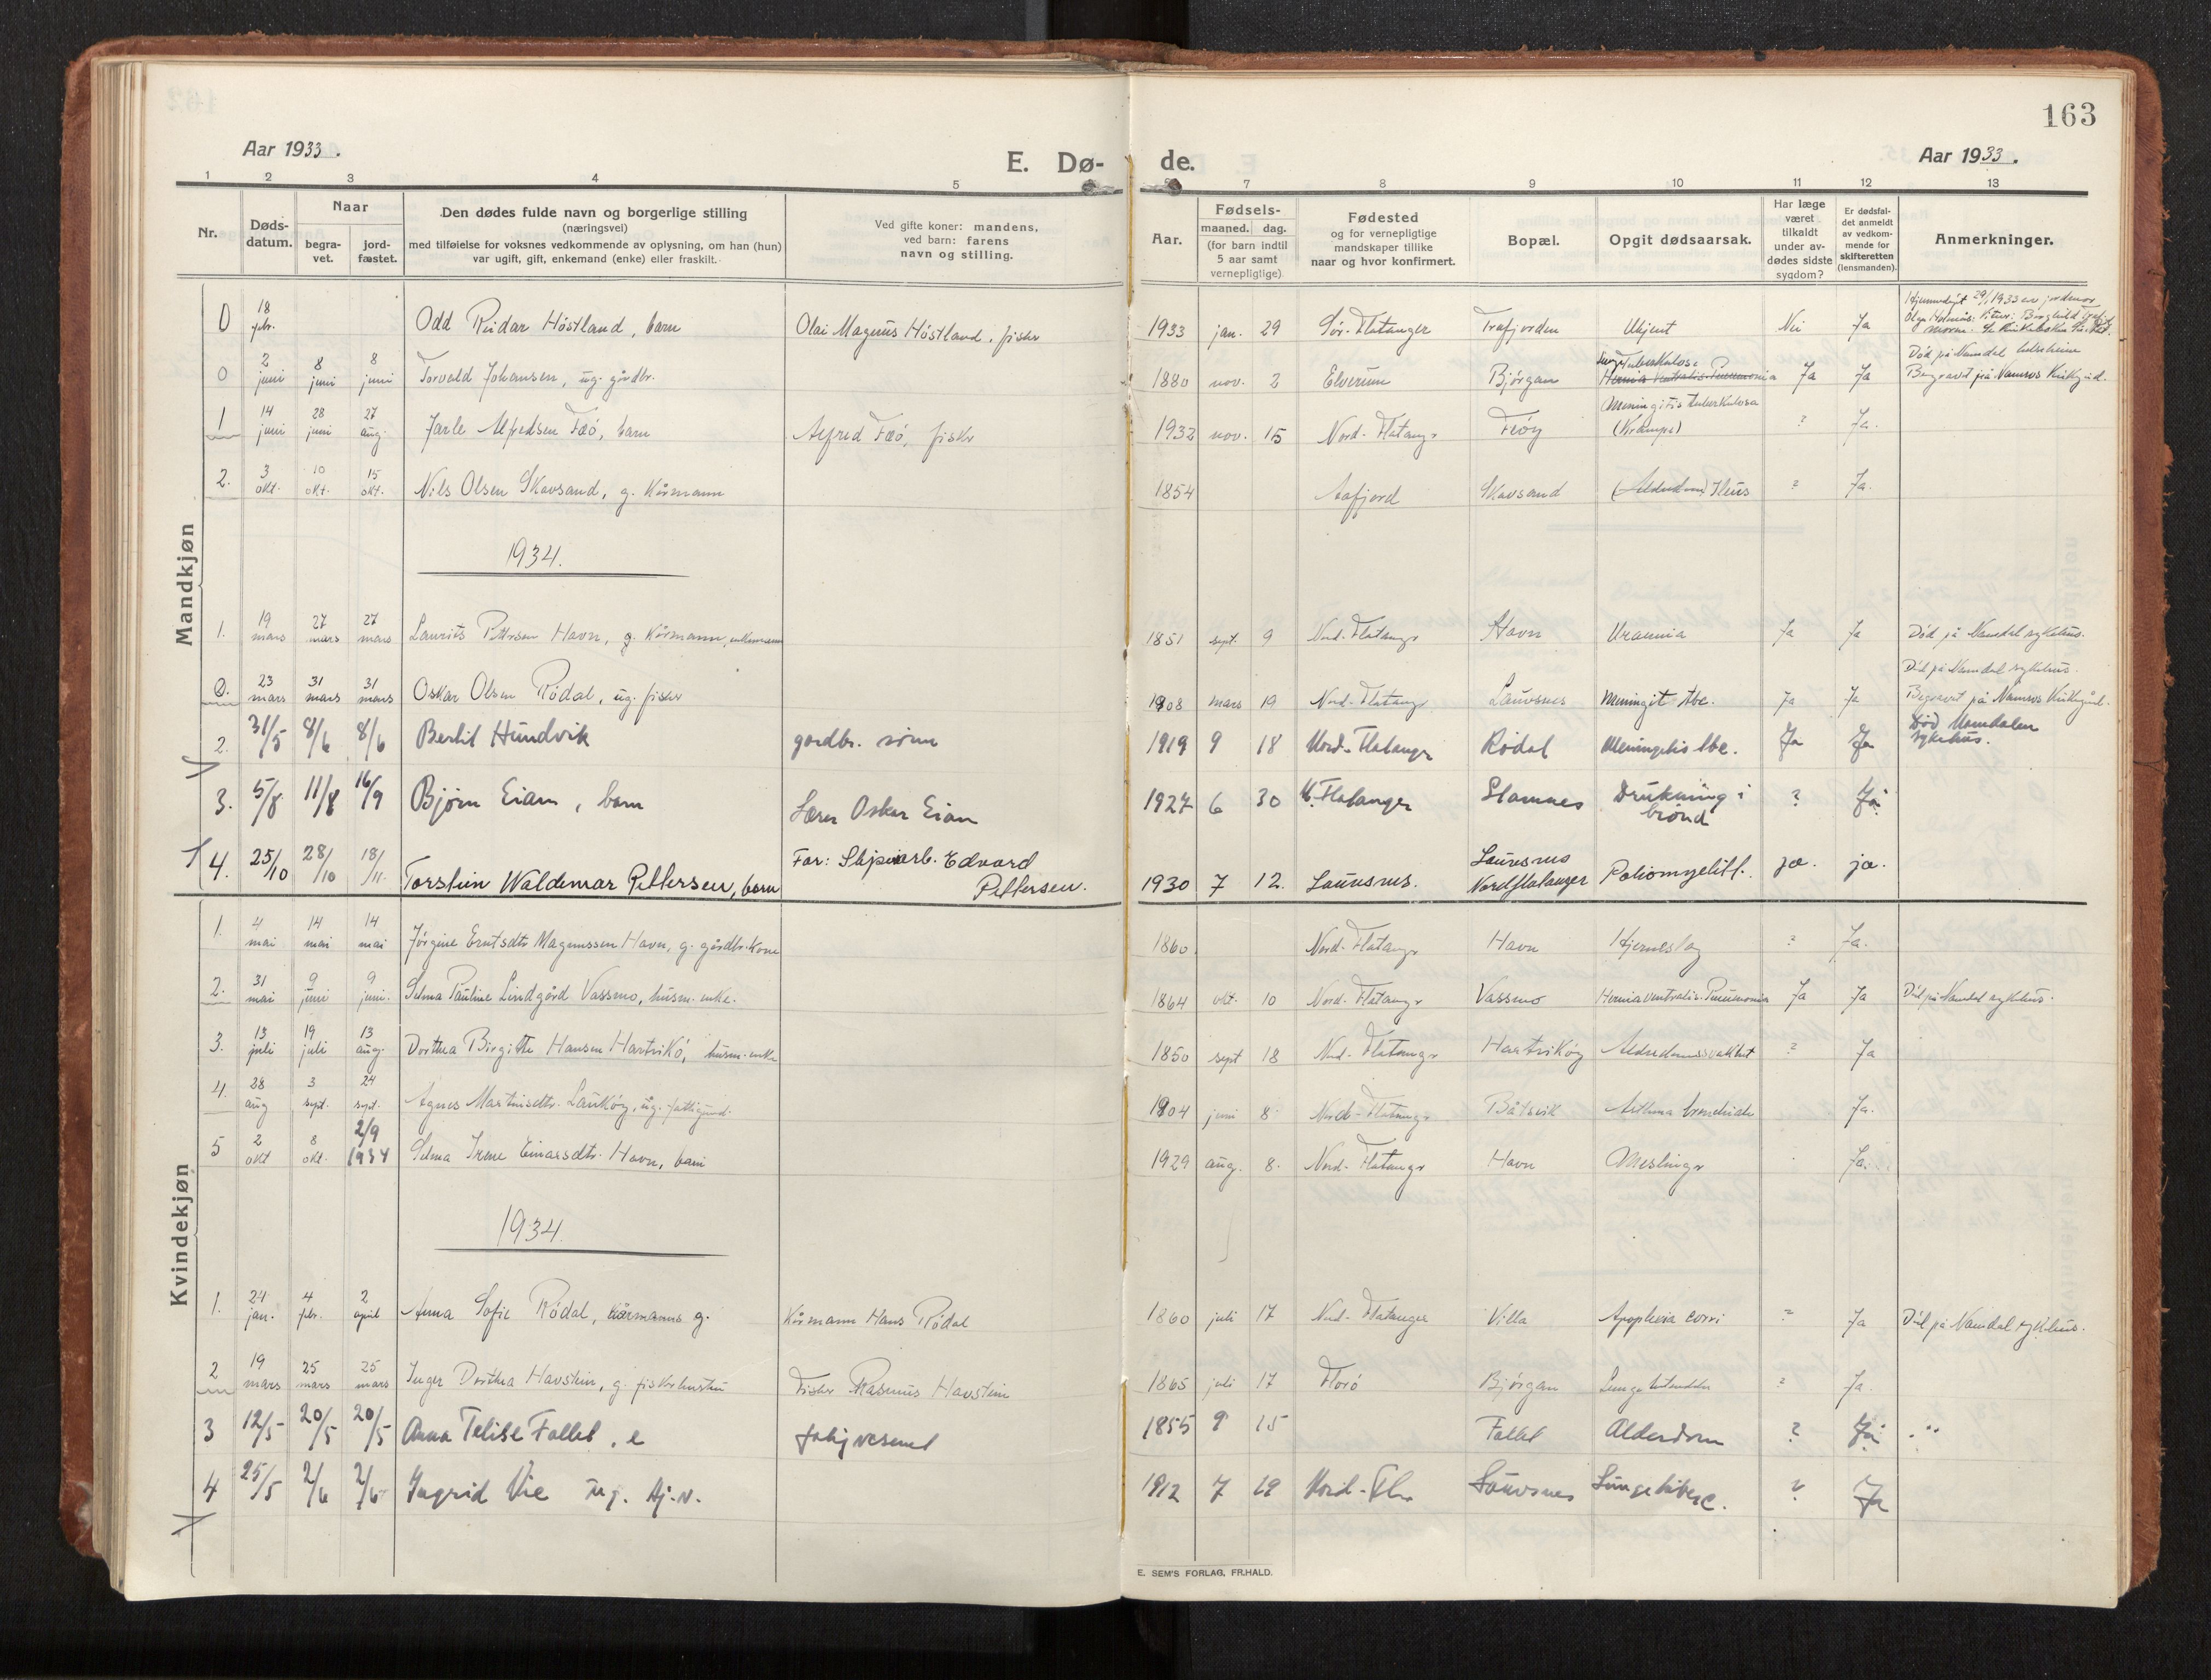 163
Aar 1933.
E. Dø-
de.
Aar 1933.
1 2 3 4 5 7 8 9 10 11 12 13
Nr.
Døds-
datum.
Naar
begra-
vet.
jord-
fæstet.
Den dødes fulde navn og borgerlige stilling
(næringsvei)
med tilføielse for voksnes vedkommende av oplysning, om han (hun)
var ugift, gift, enkemand (enke) eller fraskilt.
Ved gifte koner: mandens,
ved barn: farens
navn og stilling.
Aar.
Fødsels-
maaned. dag.
(for barn indtil
5 aar samt
vernepligtige)
Fødested
og for vernepligtige
mandskaper tillike
naar og hvor konfirmert.
Bopæl.
Opgit dødsaarsak.
Har læge
været
tilkaldt
under av-
dødes sidste
sygdom?
Er dødsfal-
det anmeldt
av vedkom-
mende for
skifteretten
(lensmanden).
Anmerkninger.
Mandkjøn
0 18 febr. Odd Reidar Høstland, barn Olai Magnus Høstland, fisker 1933 jan. 29 Sør-Flatanger Trefjorden Ukjent Nei Ja Hjemmedøpt 29/1 1933 av jordmor
Olga Holmås: Vitner: Borghild
0 2 juni 8 juni 8 juni Torvald Johansen, ug. gårdbr. 1880 nov. 2 Elverum Bjørgan Lunge Tuberkulose
Hernia Ventralis-Pneumonia Ja Ja Død på Namdal
Begravet på Namsos Kirkegård.
1 14 juni 28 juni 27 aug. Jarle Alfredsen Føø, barn Alfred Føø, fisker 1932 nov. 15 Nord-Flatangr Feøy Meningitis tuberkulosa
(Krampe) ? Ja.
2. 3 okt. 10 okt. 15 okt. Nils Olsen Skavsand, g. Kårmann 1854 Aafjord Skavsand (Alderdom) Ileus ? Ja.
1934.
1. 19 mars 27 mars 27 mars Laurits Pettersen Havn, g. Kårmann, enkemann 1851 sept. 9 Nord-Flatangr Havn Uraemia Ja Ja Død på Namdal sykehus.
0. 23 mars 31 mars 31 mars Oskar Olsen Rødal, ug. fisker 1908 mars 19 Nord-Flatangr Lauvsnes Meningit tbc. Ja Ja Død på Namdal sykehus.
Begravet på Namsos Kirkegård.
2. 31/5 8/6 8/6 Bertil Hundvik gardbr. sønn 1919 9 18 Nord-Flatanger Rødal Meningitis tbc. Ja Ja Død Namdalen
sykehus.
3. 5/8 11/8 16/9 Bjørn Eian, barn Lærer Oskar Eian 1927 6 30 N. Flatanger Stamnes Drukning i
brønd ? Ja
4. 25/10 28/10 18/11. Torstein Waldemar Pettersen, barn Far: Slipearb. Edvard
Pettersen. 1930 7 12. Lauvsnes. Lauvsnes
Nordflatanger Poliomyelitt. ja. ja.
Kvindekjøn
1. 4 mai 14 mai 14 mai Jørgine Erntsdtr Magnussen Havn, g. gårdbr. Kone 1860. Nord-Flatangr Havn Hjerneslag ? Ja.
2. 31 mai 9 juni 9 juni. Selma Pauline Lindgård Vassmo, husm. enke. 1864 okt. 10 Nord-Flatangr Vassmo Hernia ventralis-Pneumonia Ja Ja Død på Namdal sykehus.
3. 13 juli 19 juli 13 aug. Dorthea Birgitte Hansen Hartvikø, husm-enke 1850 sept 18 Nord-Flatangr Hartvikøy Alderdomssvakhet ? Ja
4. 28 aug 3 sept. 24 sept. Agnes Martinsdtr. Lauvøy, ug. fattigund. 1904 juni 8. Nord-Flatangr Båtsvik Asthma bronchiale Ja.
5 2 okt 8 okt. 2/9 1934 Selma Irene Einarsdtr. Havn, barn 1929 aug. 8. Nord-Flatangr Havn Meslinger Ja.
1934.
1. 24 jan. 4 febr. 2 april Anna Sofie Rødal, kårmanns g. Kårmann Hans Rødal 1860 juli 17 Nord-Flatanger Villa Apoplexia cerri ? Ja Død på Namdal sykehus.
2 19 mars 25 mars 25 mars Inger Dorthea Havstein, g. fiskerhustru Fisker Rasmus Havstein 1865 juli 17 Florø Bjørgan ? Ja.
3 12/5 20/5 20/5 Anna Telise Fallet, e 1855 9 15 Fallet Alderdom ? Ja
4 25/5 2/6 2/6 Ingrid Vie ug. Hj. v. 1912 7 29 Nord-Fl. Lauvsnes Lungetuberc. ? Ja
E. SEM'S FORLAG, FR.HALD.